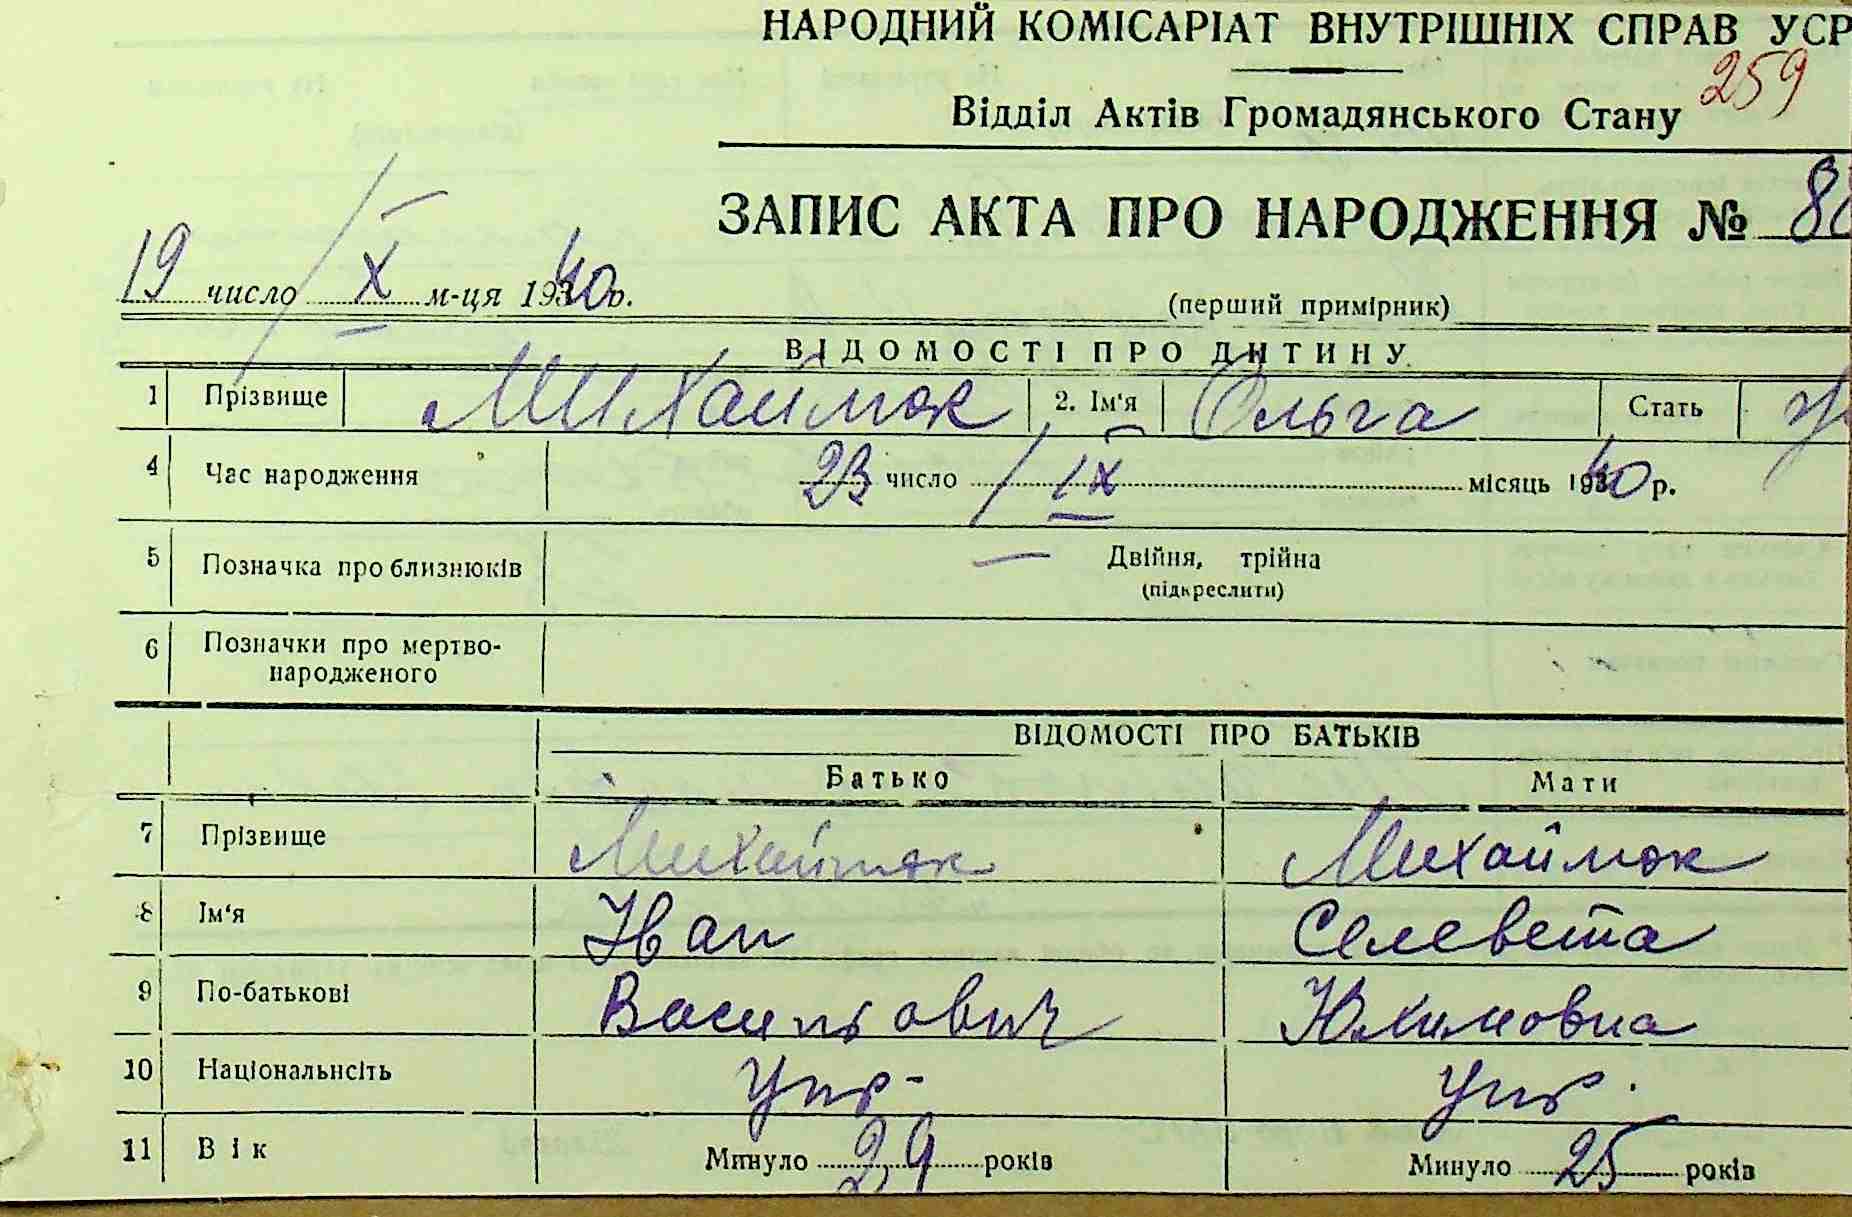 НАРОДНИЙ КОМІСАРІАТ ВНУТРІШНІХ СПРАВ УСР
259
Відділ Актів Громадянського Стану
ЗАПИС АКТА ПРО НАРОДЖЕННЯ №
19 число X м-ця 1940 р.
(перший примірник)
ВІДОМОСТІ ПРО ДИТИНУ
1 Прізвище Михаймюк 2. Ім'я Ольга Стать
4 Час народження 23 число IX місяць 1940 р.
5 Позначка про близнюків — Двійня, трійна
(підкреслити)
6 Позначки про мертво-
народженого
ВІДОМОСТІ ПРО БАТЬКІВ
Батько Мати
7 Прізвище Михаймюк Михаймюк
8 Ім'я Іван Селевета
9 По-батькові Васильович Юхимовна
10 Національнсіть Укр- Укр.
11 Вік Минуло 29 років Минуло 25 років